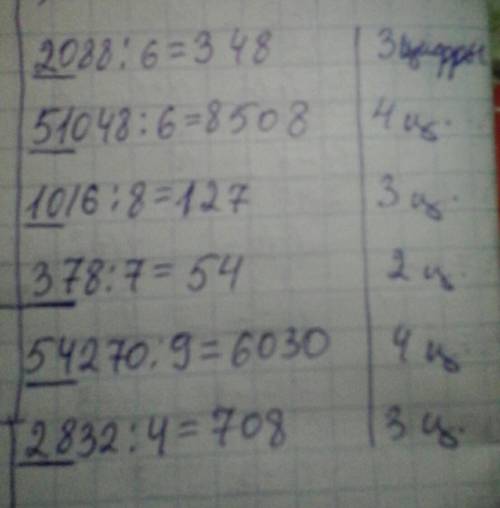 2088:6=348 3 цифры
51048:6=8508 4 ц.
1016:8=127 3 ц.
378:7=54 2 ц.
54270:9=6030 4 ц.
2832:4=708 3 ц.